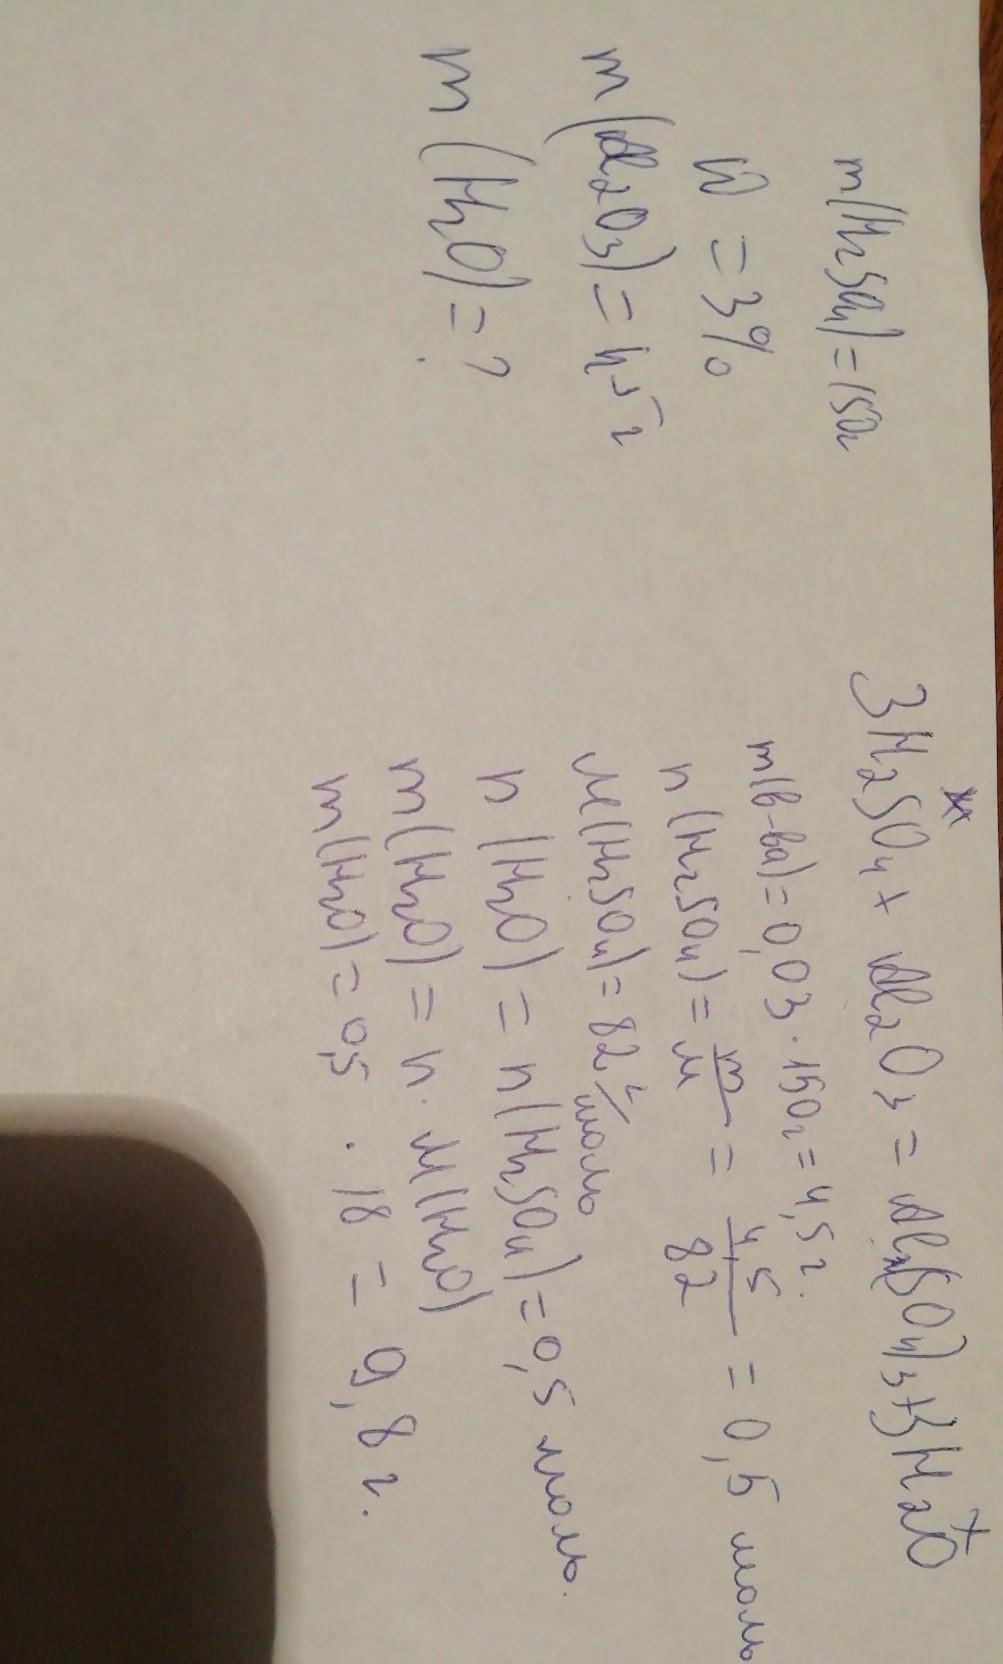 m(H₂SO₄)=150г
W = 3%
m(Al₂O₃)=45г
m(H₂O)=?
3H₂SO₄+Al₂O₃=Al₂(SO₄)₃+3H₂O
m(в-ва)=0,03·150г=4,5г.
n(H₂SO₄)=m/M=4,5/82=0,5 моль
M(H₂SO₄)=82г/моль
n(H₂O)=n(H₂SO₄)=0,5 моль.
m(H₂O)=n·M(H₂O)
m(H₂O)=0,5·18=9,8г.